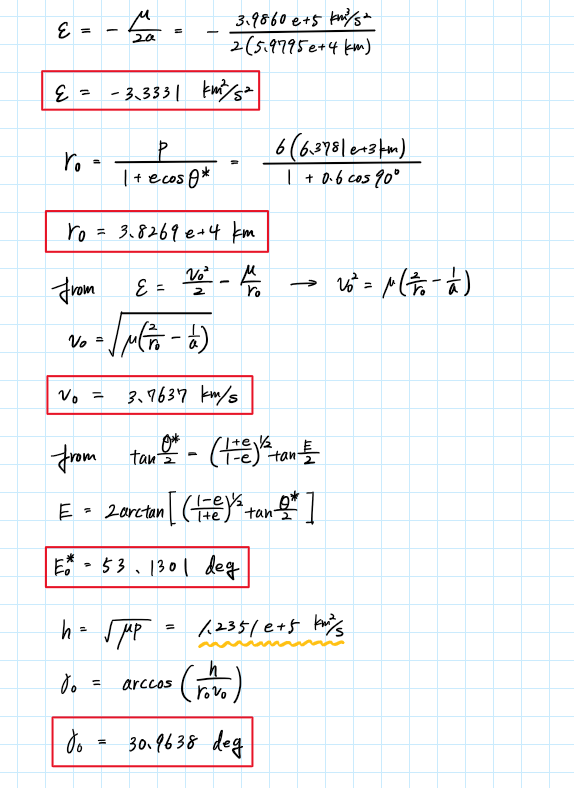 ε = - μ/2a = - 3.9860 e+5 km³/s² / 2(5.9795e+4 km)
ε = -3.3331 km²/s²
r₀ = p / 1+ecosθ* = 6(6.3781e+3km) / 1 + 0.6 cos 90°
r₀ = 3.8269 e+4 km
from ε = v₀²/2 - μ/r₀ → v₀² = μ(2/r₀ - 1/a)
v₀ = √(μ(2/r₀ - 1/a))
v₀ = 3.7637 km/s
from tan θ*/2 = (1+e/1-e)^½ tan E/2
E = 2arctan[(1-e/1+e)^½ tan θ*/2]
E₀* = 53.1301 deg
h = √μp = 1.2351 e+5 km²/s
γ₀ = arccos (h/r₀v₀)
γ₀ = 30.9638 deg